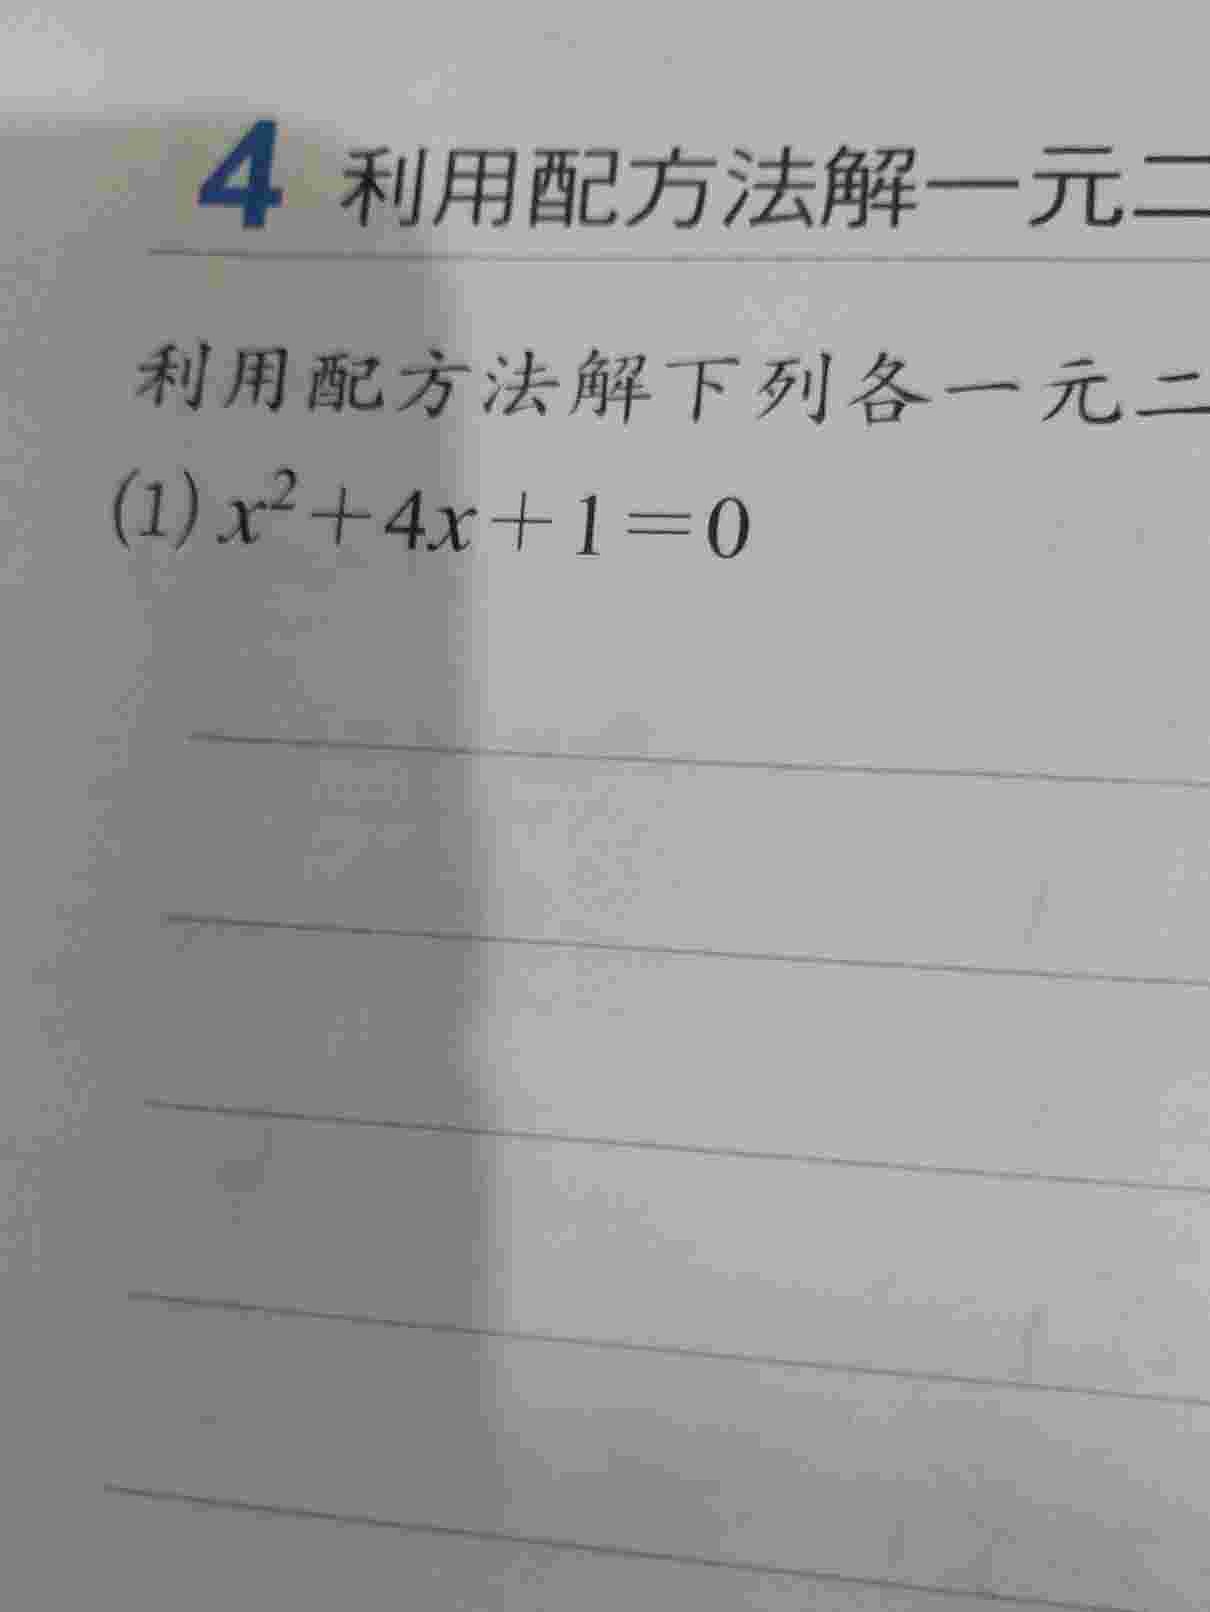 4 利用配方法解一元二
利用配方法解下列各一元二
(1) x²+4x+1=0